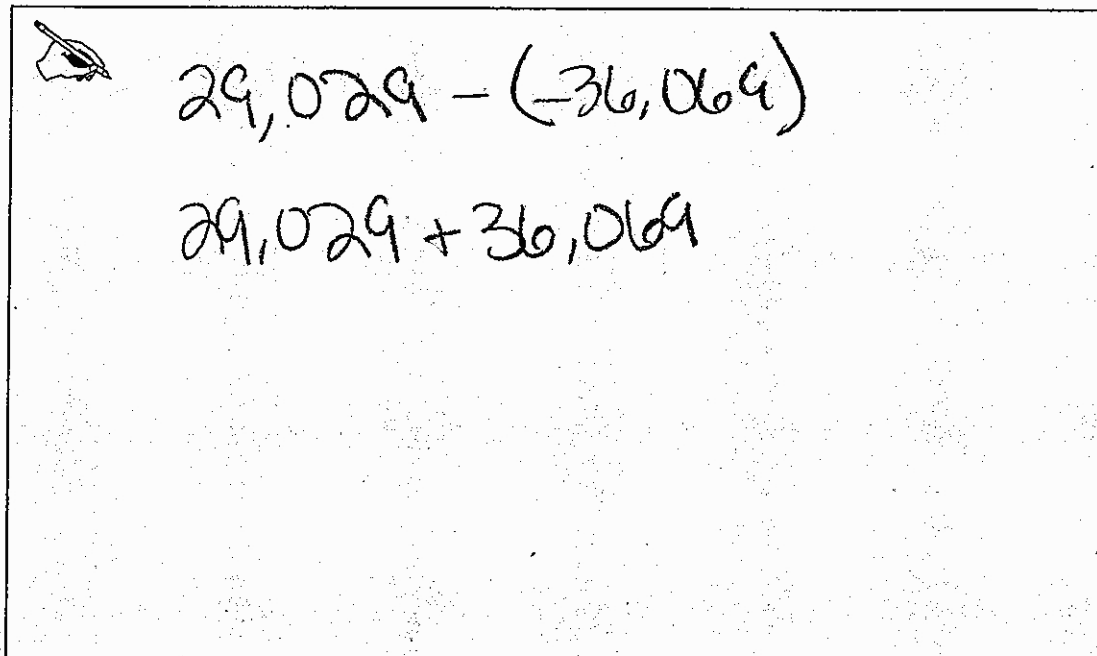 29,029 - (-36,069)
29,029 + 36,069